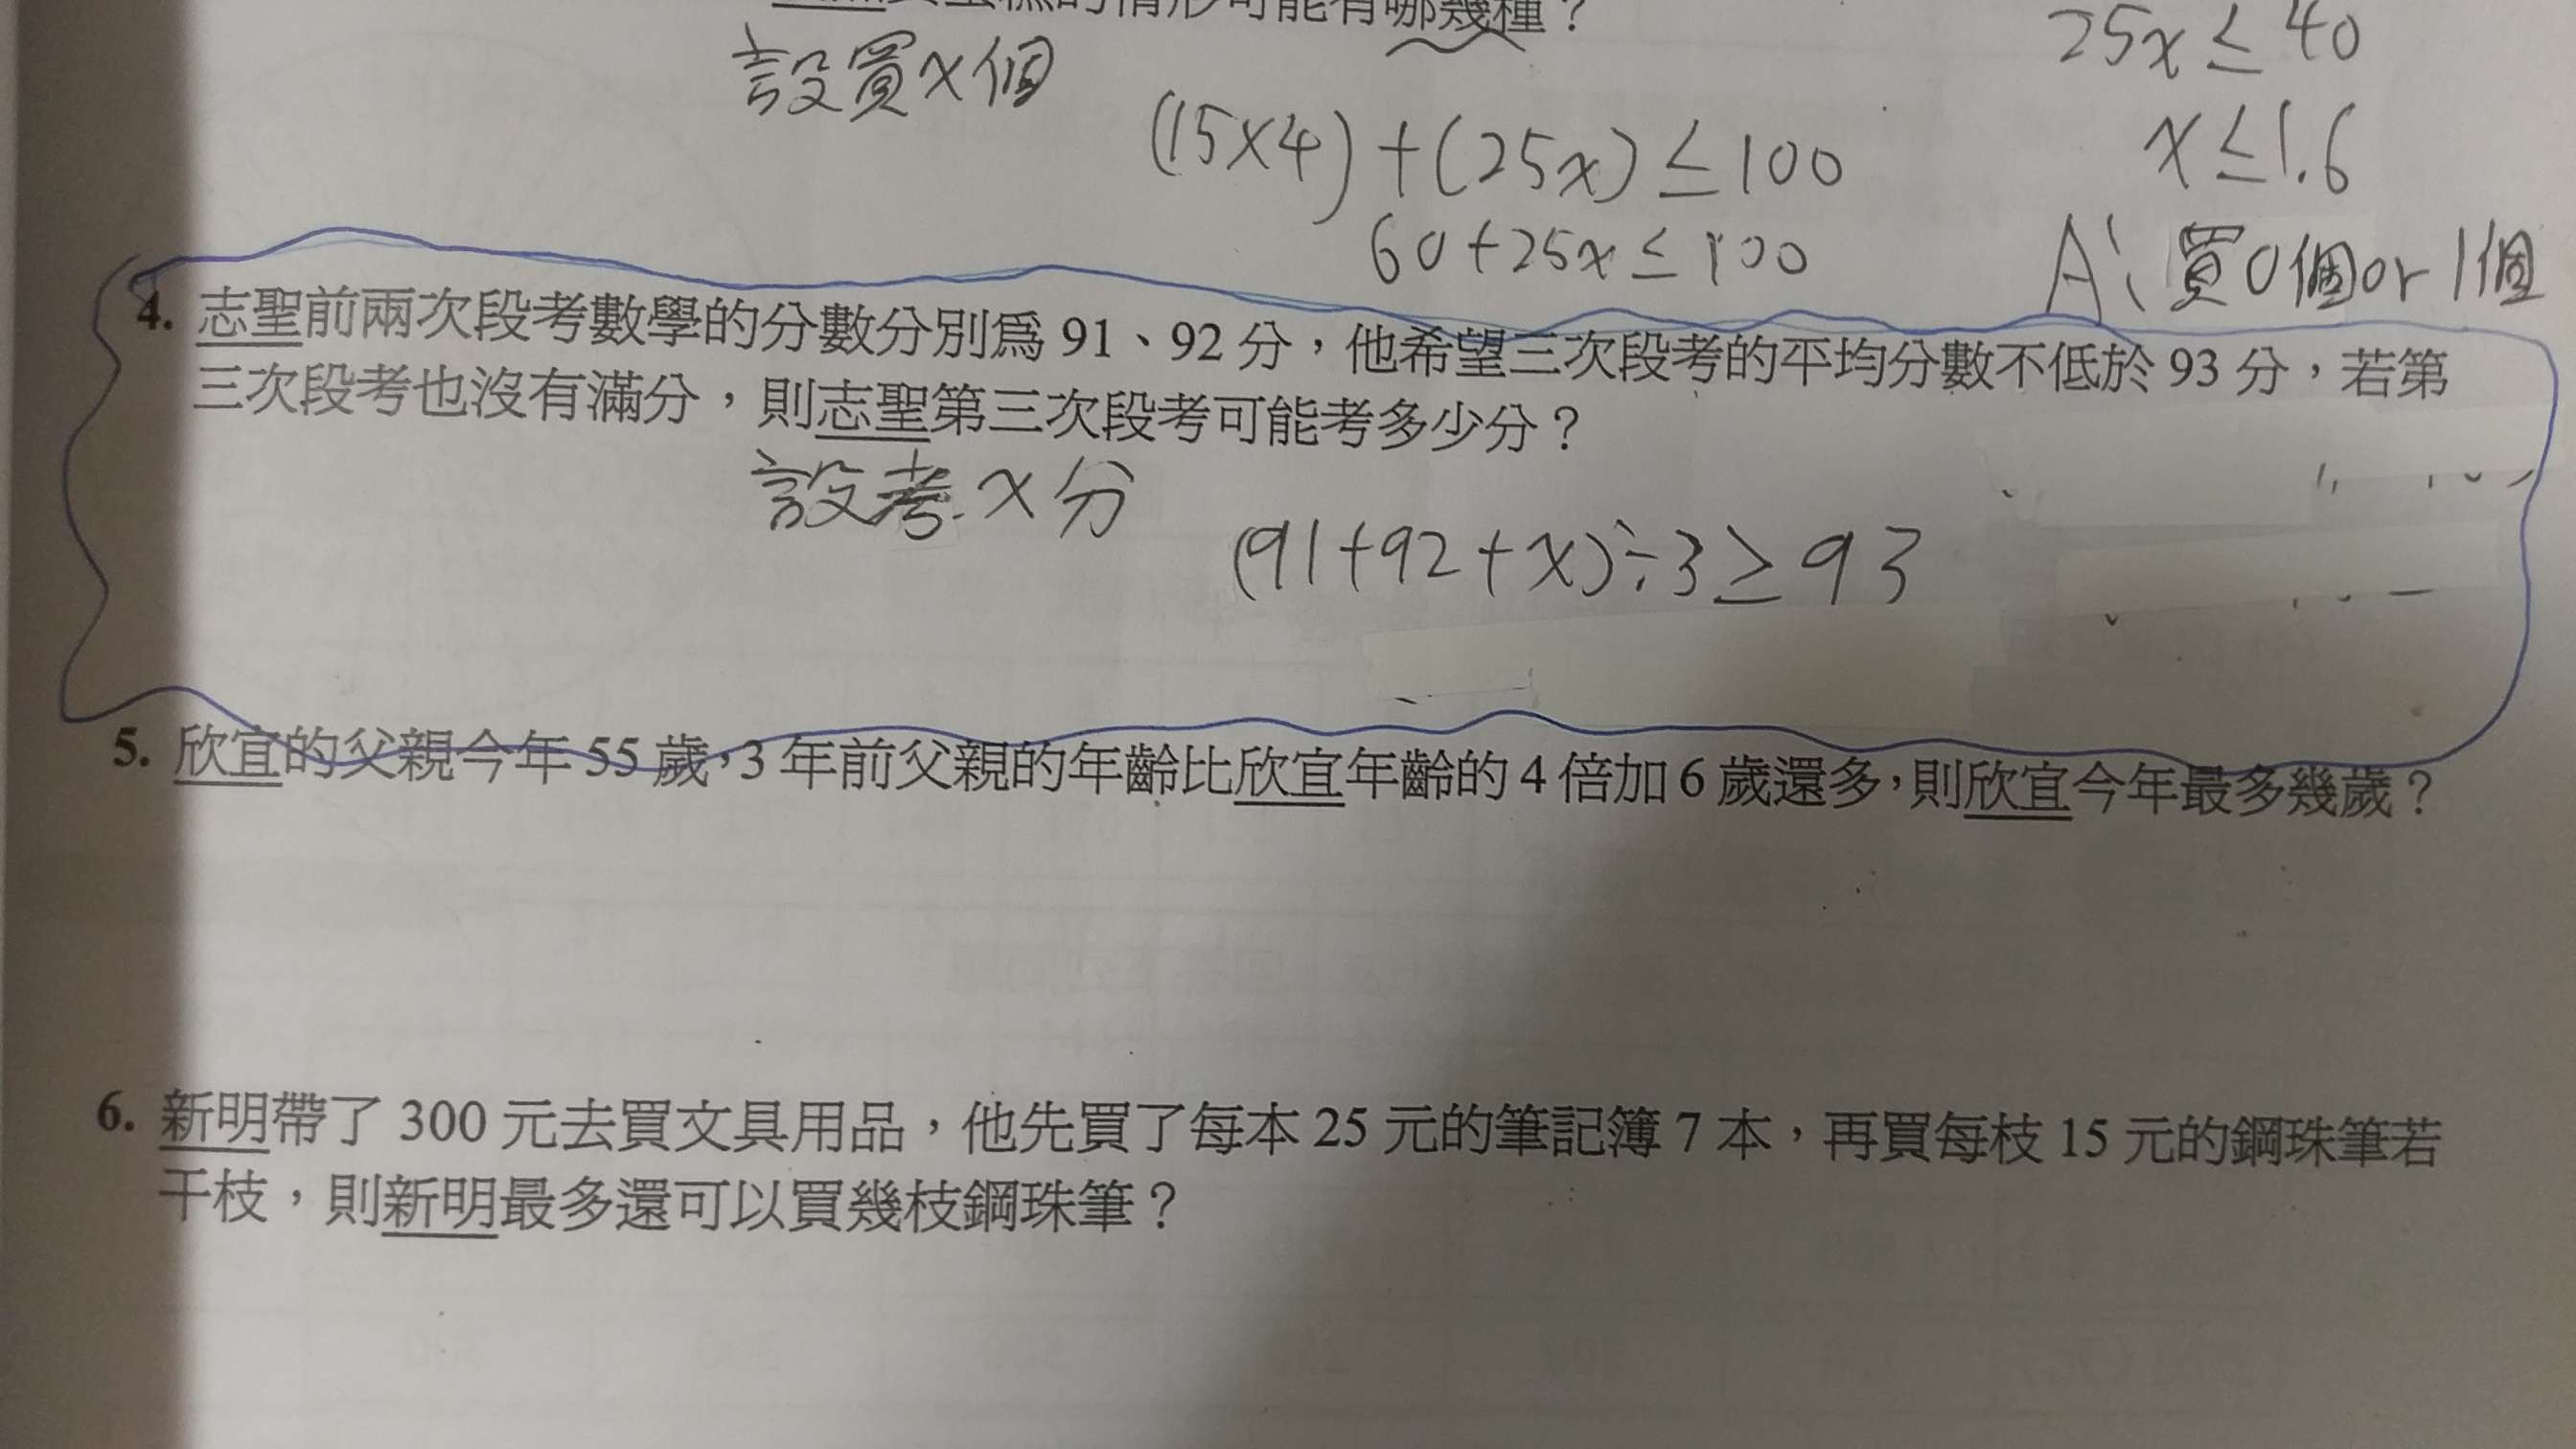 買蛋糕的情形可能有哪幾種？
設買x個
25x≤40
(15×4)+(25x)≤100
x≤1.6
60+25x≤100
A：買0個or 1個
4. 志聖前兩次段考數學的分數分別為 91、92 分，他希望三次段考的平均分數不低於 93 分，若第
三次段考也沒有滿分，則志聖第三次段考可能考多少分？
設考x分
(91+92+x)÷3≥93
5. 欣宜的父親今年 55 歲，3 年前父親的年齡比欣宜年齡的 4 倍加 6 歲還多，則欣宜今年最多幾歲？
6. 新明帶了 300 元去買文具用品，他先買了每本 25 元的筆記簿 7 本，再買每枝 15 元的鋼珠筆若
干枝，則新明最多還可以買幾枝鋼珠筆？